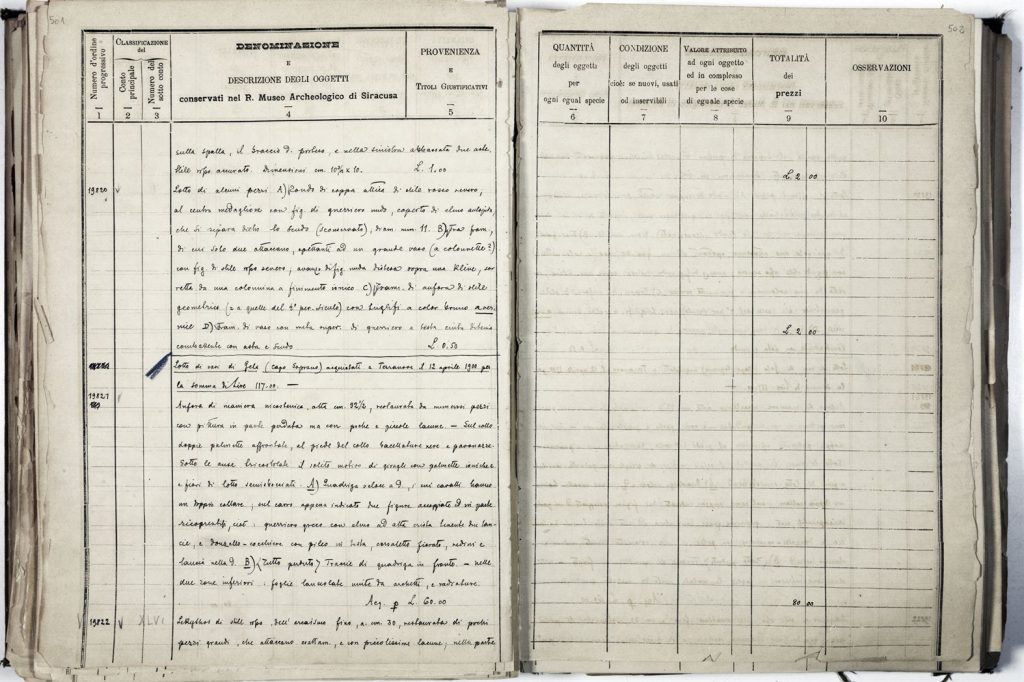 501
Numero d'ordine progressivo
CLASSIFICAZIONE del
Conto principale
Numero del sotto conto
DENOMINAZIONE
E
DESCRIZIONE DEGLI OGGETTI
conservati nel R. Museo Archeologico di Siracusa
PROVENIENZA
E
TITOLI GIUSTIFICATIVI
1 2 3 4 5
sulla spalla, il braccio d. proteso, e nella sinistra abbassata due aste.
Stile accurato. Dimensioni cm. 10 × 10. L. 1.00
19820 Lotto di alcuni pezzi. A) Fondo di coppa attica di stile rosso severo,
al centro medaglione con fig. di guerriero nudo, coperto di elmo
che si ripara dietro lo scudo (sconservato), diam. mm. 11. B) Tre fram.
di cui solo due attaccano, spettanti ad un grande vaso (a colonnette?)
con fig. di stile severo; avanzo di fig. nuda distesa sopra una Kline, sor
retta da una colonnina a finimento ionico. C) Fram. di anfora di stile
geometrico (e a quelle del per. siculo) con a color bruno a ver
nice D) Fram. di vaso con metà super. di guerriero a testa cinta
combattente con asta e scudo L. 0.50
Lotto di vasi di Gela (Capo Soprano) acquistati a Terranova il 12 aprile 1900 per
la somma di Lire 117.00. —
19821
Anfora di maniera nicostenica, alta cm. 32 ½, restaurata da numerosi pezzi
con pittura in parte perduta ma con poche e piccole lacune. — Sul collo
doppie palmette affrontate, al piede del collo baccellature nere e paonazze.
Sotto le anse il solito motivo di giragli con palmette ioniche
e fiori di loto semisbocciati. A) Quadriga veloce a d, i cui cavalli hanno
un doppio collare; sul carro appena indicato due figure accoppiate ed in parte
ricoprentisi, cioè: guerriero greco con elmo ad alta cresta tenente due lan
cie, e donzello-cocchiere con pileo in testa, corsaletto fiorato, redini e
lancia nella d. B) (Tutto perduto) Tracce di quadriga in fronte. — nelle
due zone inferiori: foglie lanceolate unite da archetti, e radiature.
Acq. p L. 60.00
19822 XLVI Lekythos di stile dell' arcaismo fino, a. cm. 30, restaurata di pochi
pezzi grandi, che attaccano esattam, e con piccolissime lacune, nella parte
502
QUANTITÀ
degli oggetti
per
ogni egual specie
CONDIZIONE
degli oggetti
cioè: se nuovi, usati
od inservibili
VALORE ATTRIBUITO
ad ogni oggetto
ed in complesso
per le cose
di eguale specie
TOTALITÀ
dei
prezzi
OSSERVAZIONI
6 7 8 9 10
L. 2 00
L. 2 00
80 00